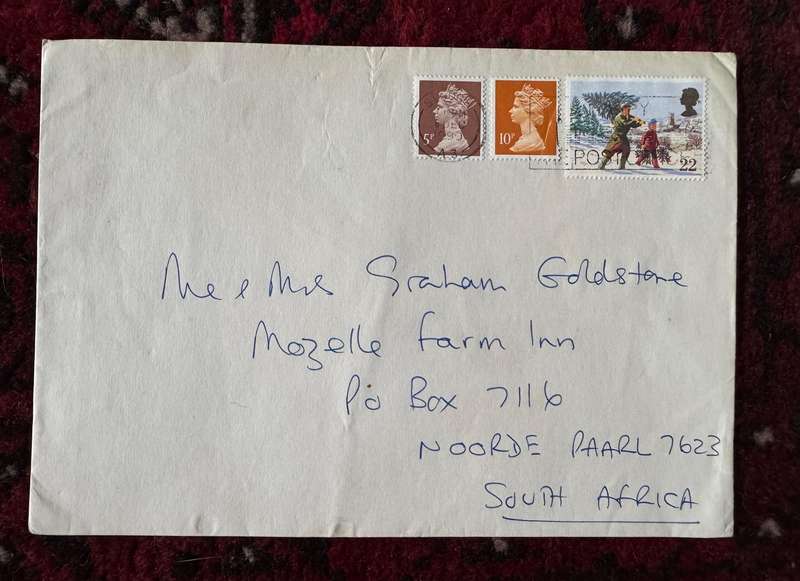 5P
10P
22
POST
Mr & Mrs Graham Goldstone
Mozelle Farm Inn
Po Box 7116
NOORDE PAARL 7623
SOUTH AFRICA